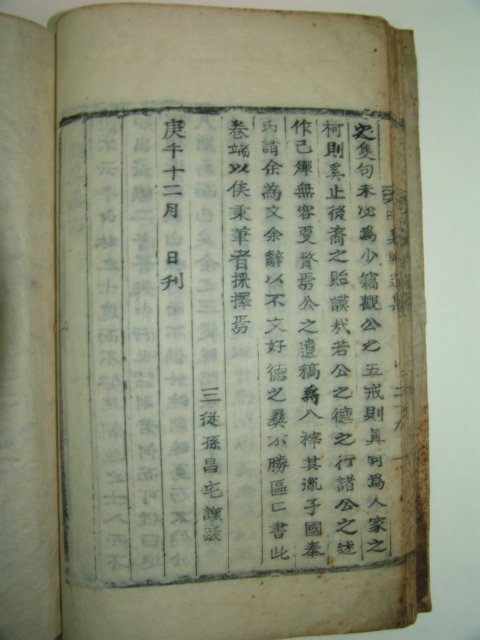 之隻句未必為少篇觀公之五戒則眞可為人家之
柯則奚止後裔之貽謨哉若公之德之行諸公之述
作已殫無容更贅焉公之遺稿將入榟其胤子國奉
氏請余為文余辭以不文好德之彝不勝區區書此
卷端以俟秉筆者採擇焉
三從孫昌宅謹跋
庚午十二月 日刊